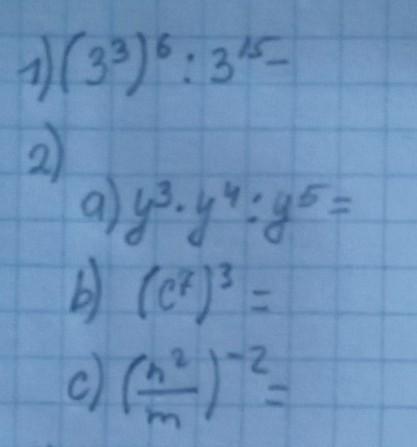 1) (3³)⁶ : 3¹⁵ -
2)
a) y³ · y⁴ : y⁵ =
b) (c⁷)³ =
c) (n²/m)⁻² =